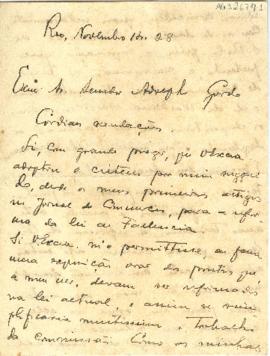 Rio, Novembro 10. 28
Exmo Sr. Senador Adolpho Gordo
Cordiaes saudações.
Vi, com grande prazer, que V. Excia
adoptou o criterio por mim suggeri-
do, desde os meus primeiros artigos
no Jornal do Commercio, para a refor-
ma da lei de Fallencia
Si V. Excia. me permittisse, eu faria
uma exposição oral dos pontos que,
a meu ver, devem ser reformados
na lei actual e assim se sim-
plificaria muitissimo o trabalho
da commissão. Como os minhas